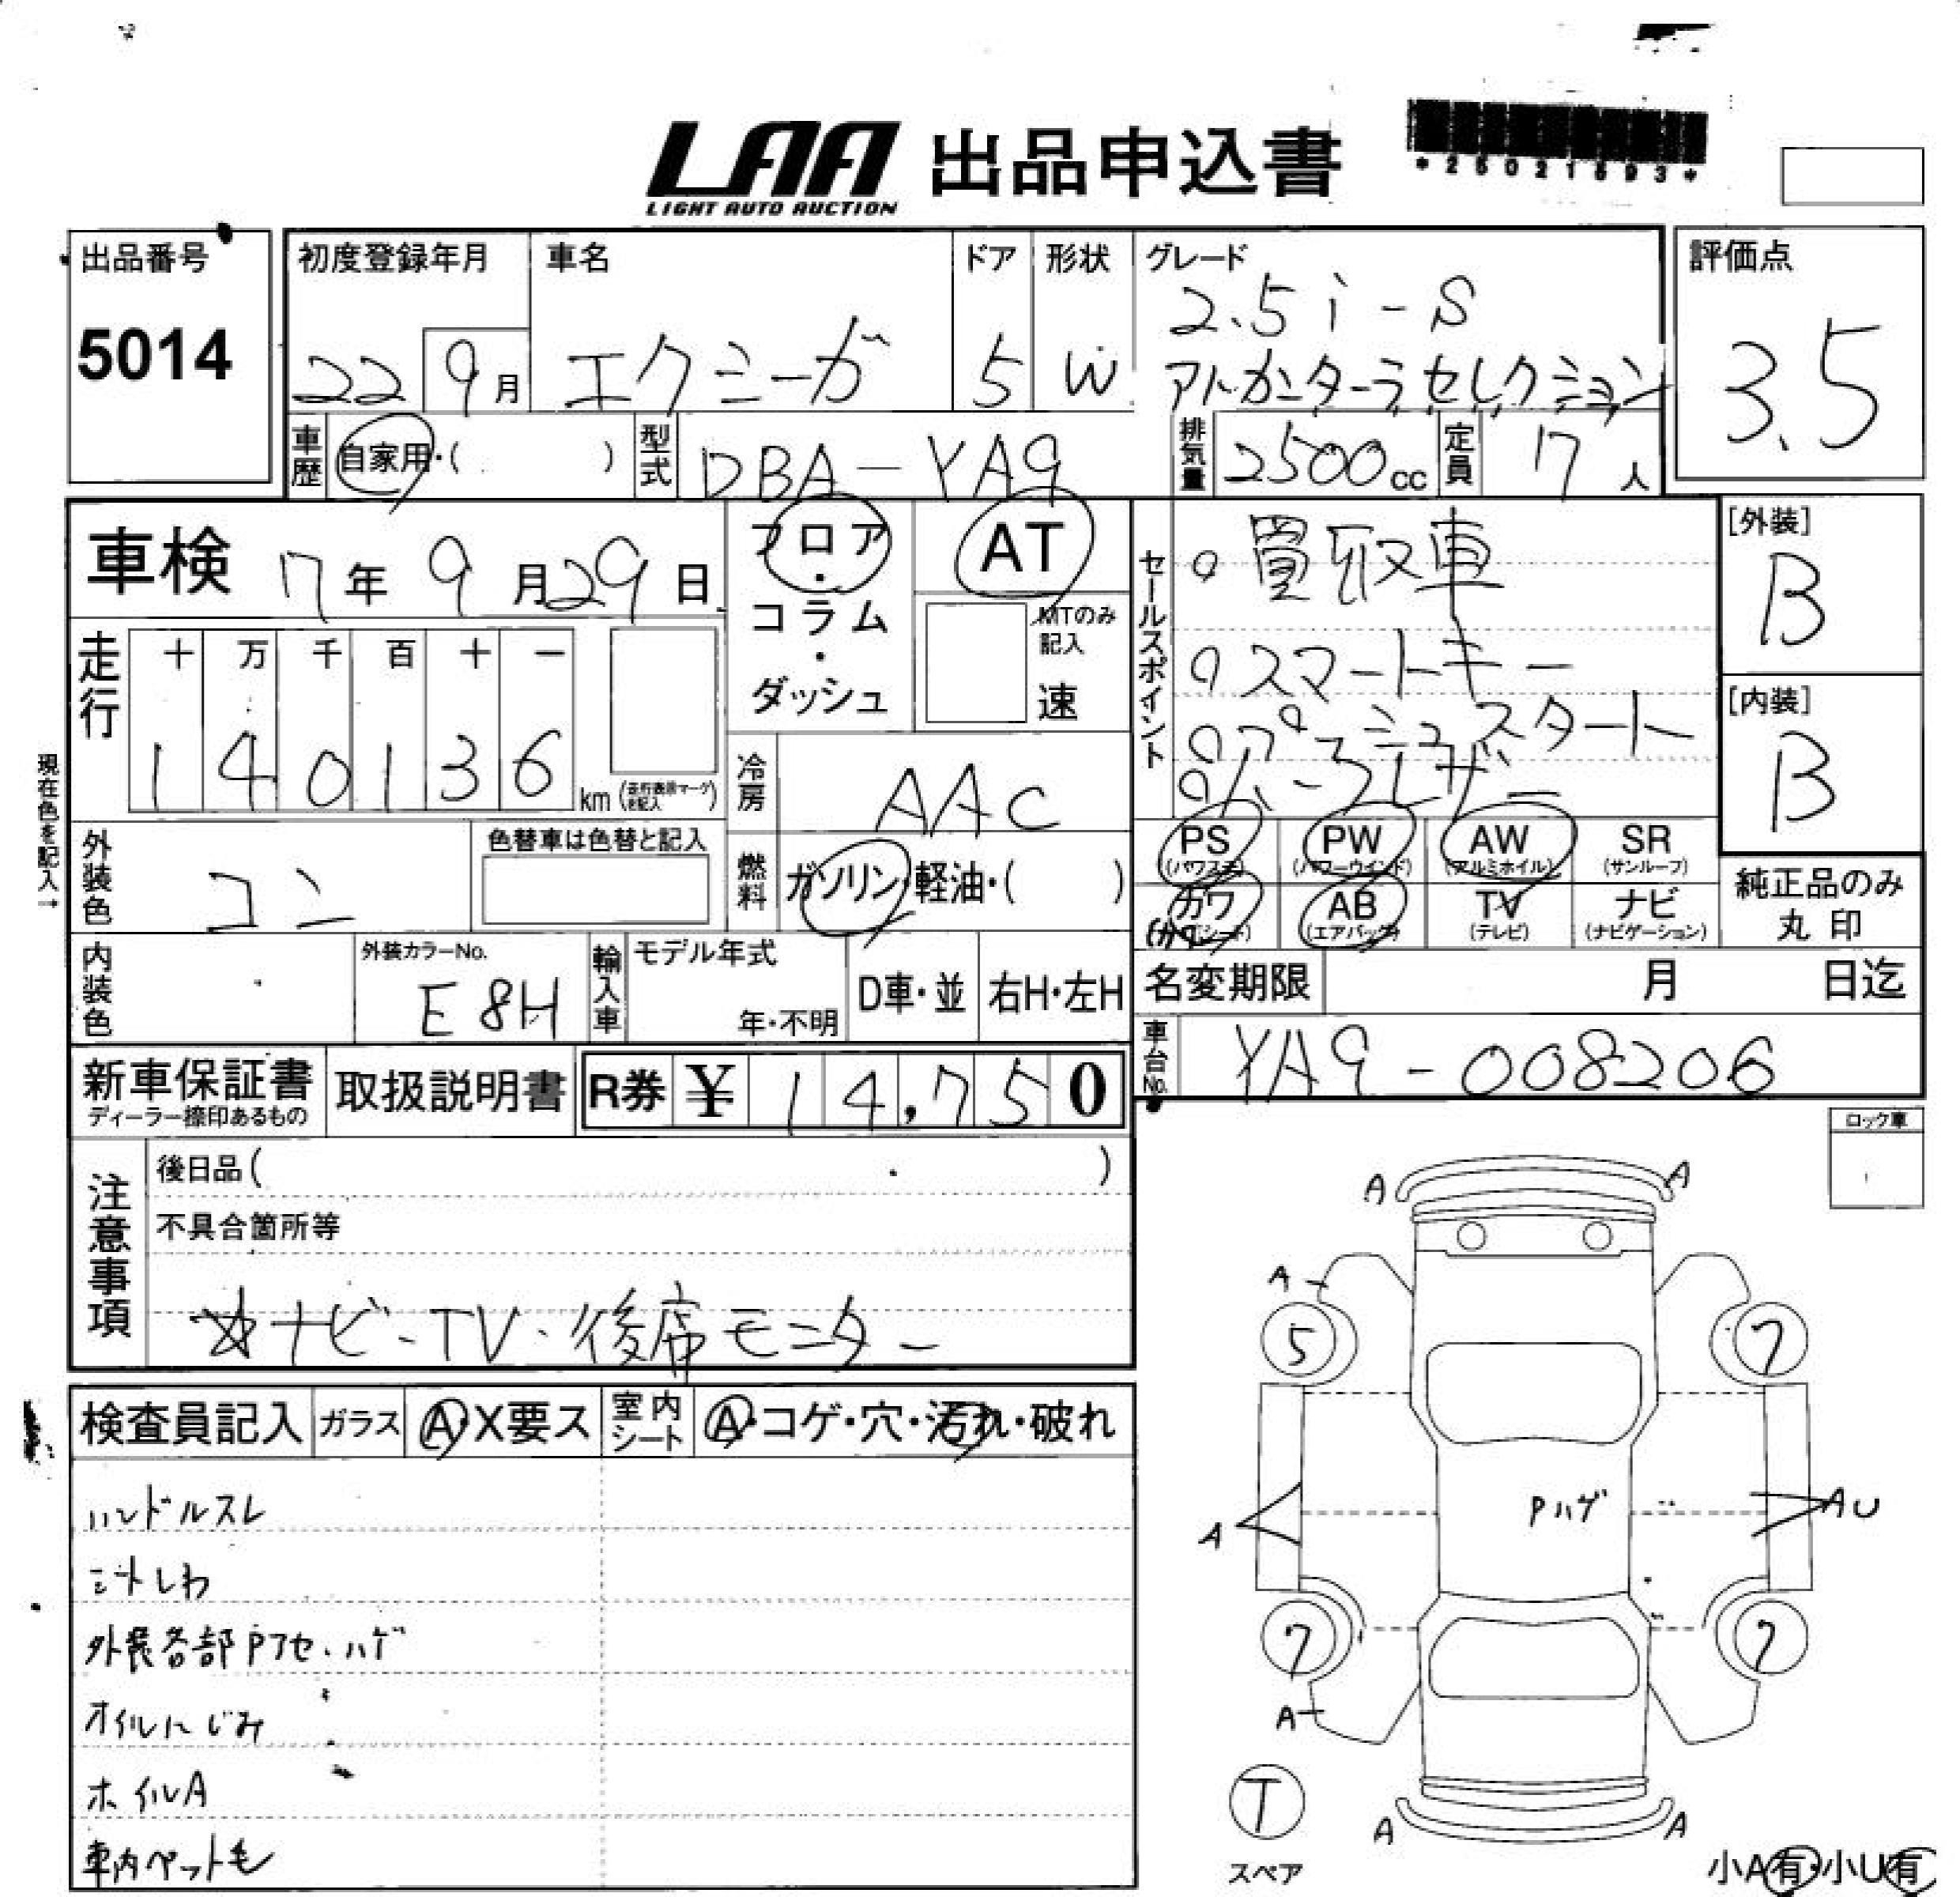 LAA 出品申込書
LIGHT AUTO AUCTION
*25021693*
出品番号
5014
初度登録年月
22 9月
車名
エクシーガ
ドア
5
形状
W
グレード
2.5i-S
アルカンターラセレクション
評価点
3.5
車歴 自家用・( )
型式 DBA-YA9
排気量 2500cc
定員 7人
車検 7年 9月29日
フロア・コラム・ダッシュ
AT
MTのみ記入
速
セールスポイント
買取車
スマートキー
プッシュスタート
パーフレザー
[外装]
B
[内装]
B
現在色を記入→
走行
十 万 千 百 十 一
1 4 0 1 3 6 km (走行表示マーク記入)
冷房 AAC
外装色 コン
色替車は色替と記入
燃料 ガソリン・軽油・( )
PS (パワステ)
PW (パワーウインド)
AW (アルミホイル)
SR (サンルーフ)
カワ (カワシート)
AB (エアバッグ)
TV (テレビ)
ナビ (ナビゲーション)
純正品のみ丸印
内装色
外装カラーNo.
E8H
輸入車
モデル年式
年・不明
D車・並
右H・左H
名変期限 月 日迄
車台No. YA9-008206
新車保証書
ディーラー捺印あるもの
取扱説明書
R券 ¥ 14,750
ロック車
注意事項
後日品( )
不具合箇所等
ナビ・TV・後席モニター
検査員記入
ガラス A・X要ス
室内シート A・コゲ・穴・汚れ・破れ
ハンドルスレ
シートしわ
外装各部Pアセ・ハゲ
オイルにじみ
ホイルA
車内ペット毛
A A
A
5 7
A Pハゲ AU
7 7
A
T
スペア
A A
小A有・小U有